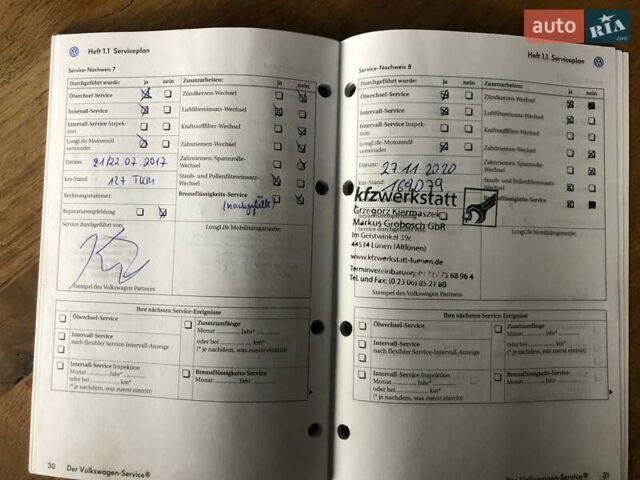 auto RIA.com
Heft 1.1 Serviceplan
Service-Nachweis 7
Durchgeführt wurde: ja nein Zusatzarbeiten: ja nein
Ölwechsel-Service Zündkerzen-Wechsel
Intervall-Service Luftfiltereinsatz-Wechsel
Intervall-Service Inspektion Kraftstofffilter-Wechsel
LongLife-Motorenöl verwendet Zahnriemen-Wechsel
Datum: 21/22.07.2017 Zahnriemen: Spannrolle-Wechsel
km-Stand: 127 TKM Staub- und Pollenfiltereinsatz-Wechsel
Rechnungsnummer: Bremsflüssigkeits-Service
(nachgefüllt)
Reparaturempfehlung
Service durchgeführt von: LongLife Mobilitätsgarantie:
Stempel des Volkswagen Partners
Ihre nächsten Service-Ereignisse
Ölwechsel-Service Zusatzumfänge
Monat Jahr*
Intervall-Service
nach flexibler Service-Intervall-Anzeige
oder bei km*
(* je nachdem, was zuerst eintritt)
Intervall-Service Inspektion Bremsflüssigkeits-Service
Monat Jahr* Monat Jahr
oder bei km*
(* je nachdem, was zuerst eintritt)
30 Der Volkswagen-Service®
Heft 1.1 Serviceplan
Service-Nachweis 8
Durchgeführt wurde: ja nein Zusatzarbeiten: ja nein
Ölwechsel-Service Zündkerzen-Wechsel
Intervall-Service Luftfiltereinsatz-Wechsel
Intervall-Service Inspektion Kraftstofffilter-Wechsel
LongLife-Motorenöl verwendet Zahnriemen-Wechsel
Datum: 27.11.2020 Zahnriemen: Spannrolle-Wechsel
km-Stand: 169079 Staub- und Pollenfiltereinsatz-Wechsel
kfzwerkstatt
Grzegorz Kiermaszek
Markus Grobosch GbR
Im Geistwinkel 19c
44534 Lünen (Altlünen)
www.kfzwerkstatt-luenen.de
Tel. und Fax: (0 23 06) 85 21 80
LongLife Mobilitätsgarantie:
Stempel des Volkswagen Partners
Ihre nächsten Service-Ereignisse
Ölwechsel-Service Zusatzumfänge
Monat Jahr*
Intervall-Service
nach flexibler Service-Intervall-Anzeige
oder bei km*
(* je nachdem, was zuerst eintritt)
Intervall-Service Inspektion Bremsflüssigkeits-Service
Monat Jahr* Monat Jahr
oder bei km*
(* je nachdem, was zuerst eintritt)
Der Volkswagen-Service® 31